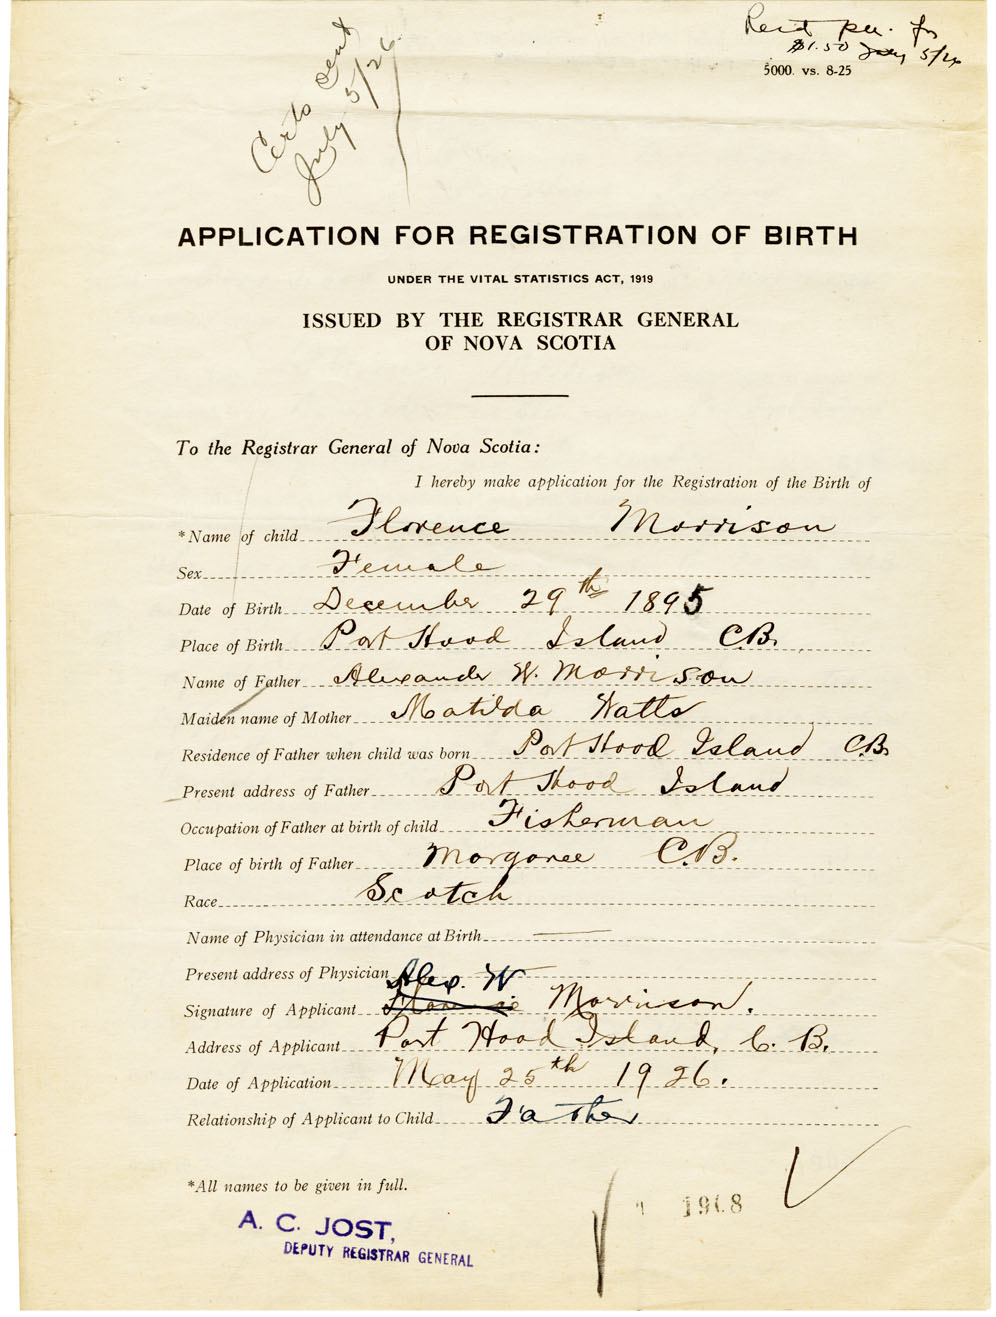 Recd per. fr
$1.50 July 5/26
5000. vs. 8-25
Certs sent
July 5/26
APPLICATION FOR REGISTRATION OF BIRTH
UNDER THE VITAL STATISTICS ACT, 1919
ISSUED BY THE REGISTRAR GENERAL
OF NOVA SCOTIA
To the Registrar General of Nova Scotia:
I hereby make application for the Registration of the Birth of
*Name of child Florence Morrison
Sex Female
Date of Birth December 29th 1895
Place of Birth Port Hood Island C.B.
Name of Father Alexander W. Morrison
Maiden name of Mother Matilda Watts
Residence of Father when child was born Port Hood Island C.B.
Present address of Father Port Hood Island
Occupation of Father at birth of child Fisherman
Place of birth of Father Margaree C.B.
Race Scotch
Name of Physician in attendance at Birth
Present address of Physician
Signature of Applicant Alex. W Morrison.
Address of Applicant Port Hood Island, C. B.
Date of Application May 25th 1926.
Relationship of Applicant to Child Father
*All names to be given in full.
1908
A. C. JOST,
DEPUTY REGISTRAR GENERAL